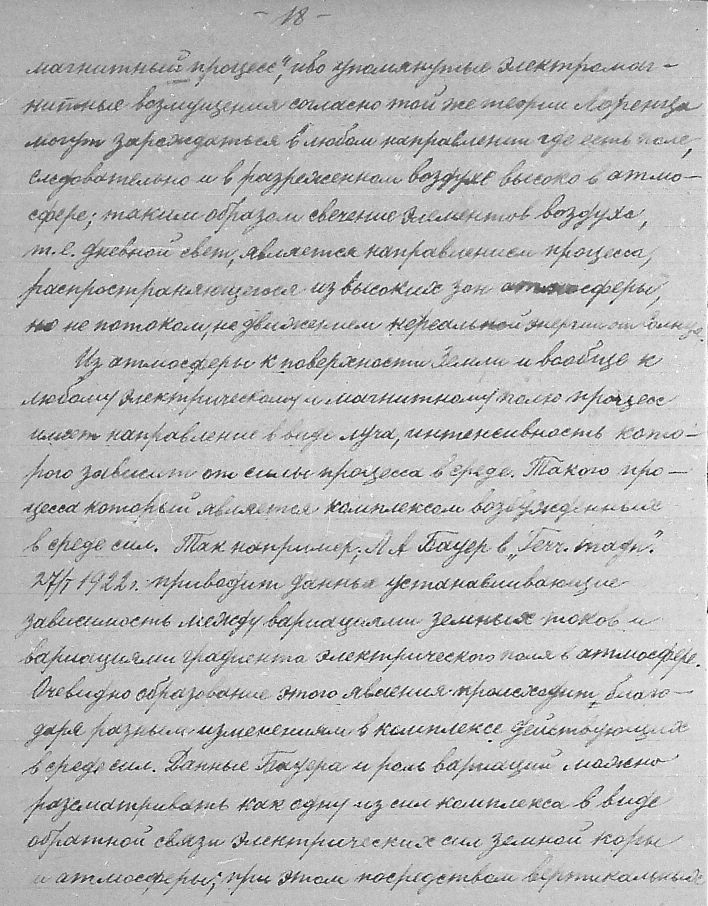 - 18 -
магнитный процесс", ибо упомянутые электромаг-
нитные возмущения согласно той же теории Лоренца
могут зарождаться в любом направлении где есть поле,
следовательно и в разреженном воздухе высоко в атмо-
сфере; таким образом свечение элементов воздуха,
т.е. дневной свет, является направлением процесса,
распространяющегося из высоких зон атмосферы,
но не потоком, не движением нереальной энергии от Солнца.
Из атмосферы к поверхности Земли и вообще к
любому электрическому и магнитному полю процесс
имеет направление в виде луча, интенсивность кото-
рого зависит от силы процесса в среде. Такого про-
цесса который является комплексом возбужденных
в среде сил. Так например, Л А Бауер в „Терр. магн".
27/I 1922 г. приводит данныя устанавливающие
зависимость между вариациями земных токов и
вариациями градиента электрического поля в атмосфере.
Очевидно образование этого явления происходит благо-
даря разным изменениям в комплексе действующих
в среде сил. Данные Бауера и роль вариаций можно
разсматривать как одну из сил комплекса в виде
обратной связи электрических сил земной коры
и атмосферы; при этом посредством вертикальных